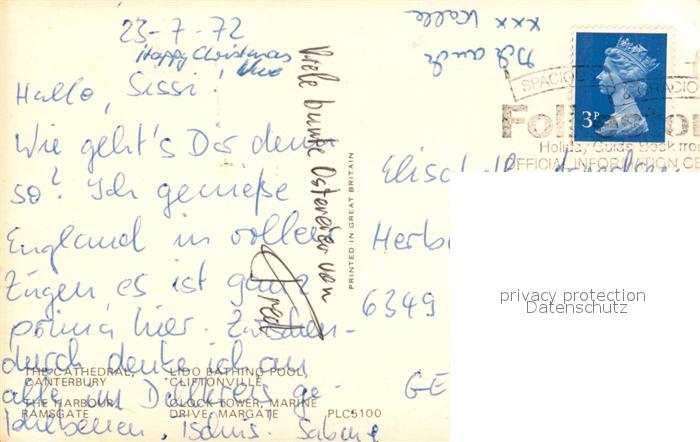 23-7-72
Happy Christmas
Uwe
Hallo, Sissi!
Wie geht's Dir denn
so? Ich genieße
England in vollen
Zügen, es ist ganz
prima hier. Zwischen-
durch denke ich an
alle in Dillkreis ge-
bliebenen. Tschüs. Sabine
Viele bunte Ostereier von
Fred
Ich auch
xxx Kalle
3P
SPACIO
& GRACIO
Folkeston
Holiday Guide Book from
OFFICIAL INFORMATION CE
Elisabeth
Herbo
6349
GE
PRINTED IN GREAT BRITAIN
privacy protection
Datenschutz
THE CATHEDRAL,
CANTERBURY
LIDO BATHING POOL,
CLIFTONVILLE
THE HARBOUR,
RAMSGATE
CLOCK TOWER, MARINE
DRIVE, MARGATE
PLC5100